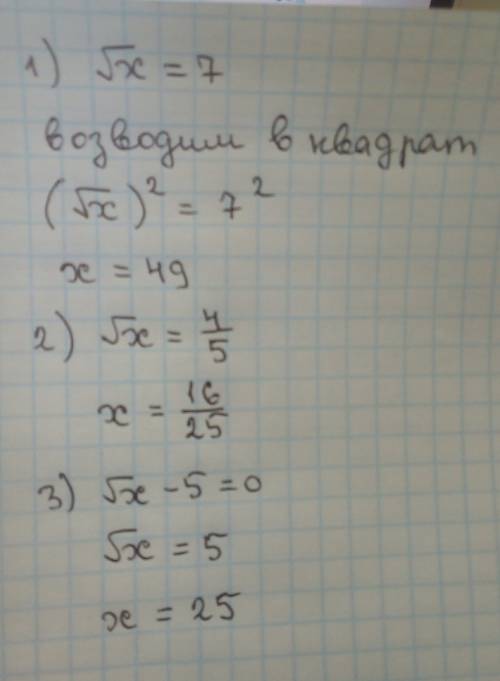 1) √x = 7
возводим в квадрат
(√x)² = 7²
x = 49
2) √x = 4/5
x = 16/25
3) √x - 5 = 0
√x = 5
x = 25